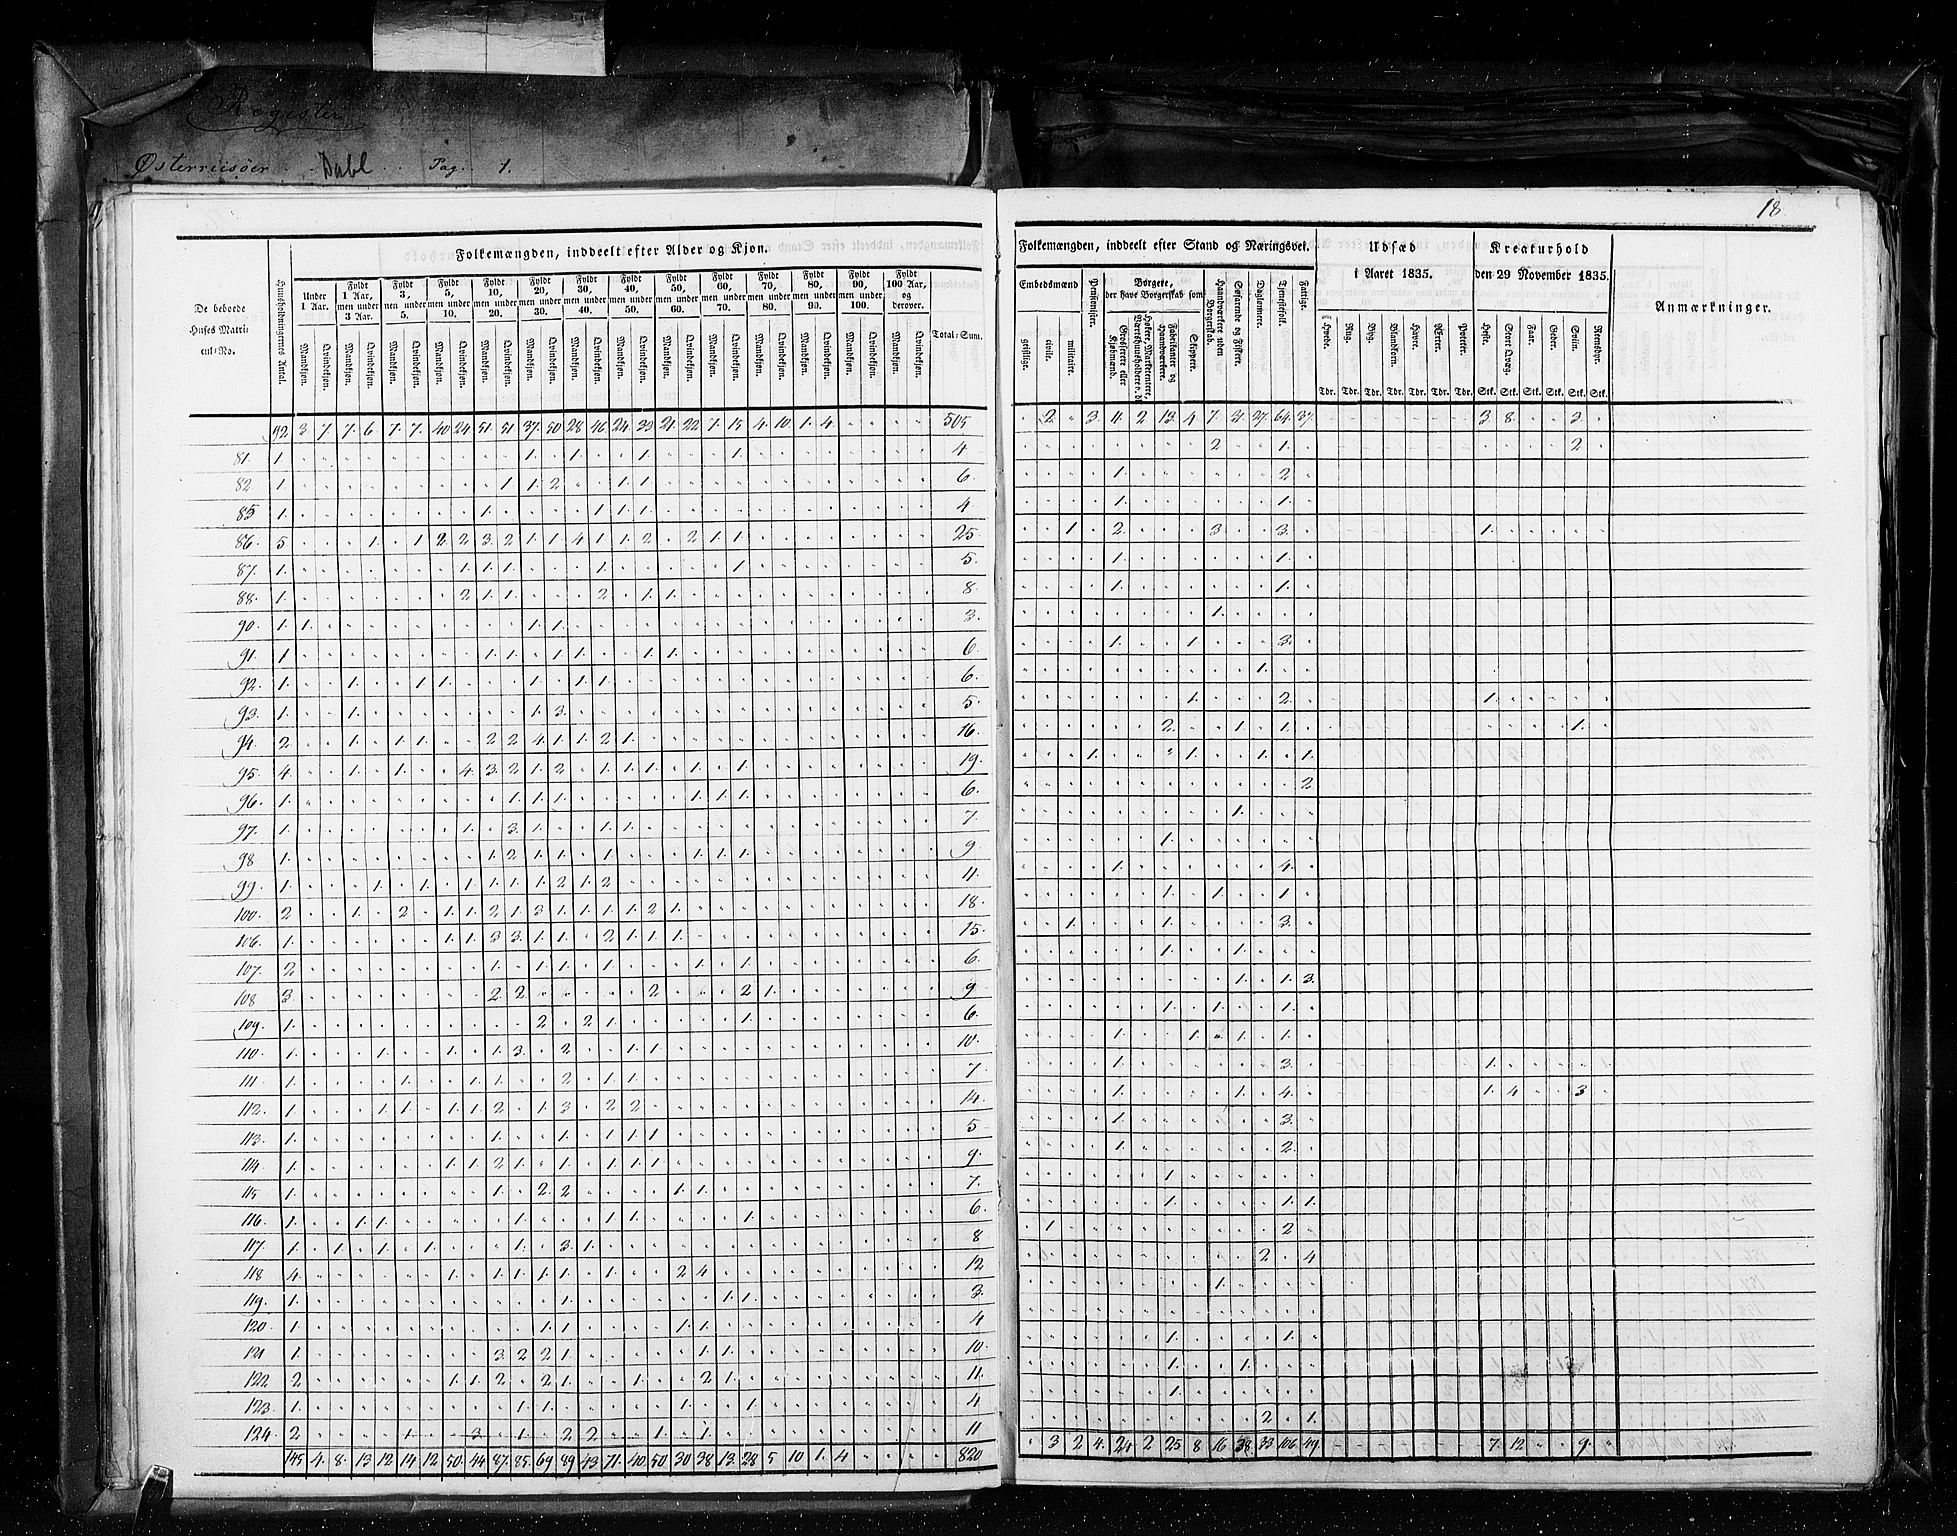 Register
Østerriisöer . . Dahl . . Pag. 1.
18
Folkemængden, inddeelt efter Alder og Kjøn.
De beboede Huses Matricul-No.
Huusholdningernes Antal.
Under 1 Aar.
Fyldt 1 Aar, men under 3 Aar.
Fyldt 3, men under 5.
Fyldt 5, men under 10.
Fyldt 10, men under 20.
Fyldt 20, men under 30.
Fyldt 30, men under 40.
Fyldt 40, men under 50.
Fyldt 50, men under 60.
Fyldt 60, men under 70.
Fyldt 70, men under 80.
Fyldt 80, men under 90.
Fyldt 90, men under 100.
Fyldt 100 Aar, og derover.
Mandkjøn. Qvindekjøn.
Total-Sum.
92. 3. 7. 7. 6 7. 7. 40. 24 51. 51. 37. 50 28 46 24 23 21. 22 7. 15 4. 10. 1. 4. 505
81. 1. 1. 1. 1. 1. 4
82 1. 1 1. 2 1. 1 6.
85 1. 1. 1 1. 1. 4
86. 5 1. 1 2 2 3. 2 1. 1. 4 1. 1. 2 2 1. 1. 25
87. 1. 1. 1. 1. 1. 1. 5.
88. 1. 2 1. 1. 2. 1. 1. 8.
90. 1. 1. 1. 1. 3.
91. 1. 1. 1. 1. 1. 1. 1. 6.
92. 1. 1. 1. 1. 1. 1. 1. 6.
93. 1. 1. 1. 3. 5
94. 2 1. 1. 1. 2 2 4. 1. 1. 2 1. 16
95. 4. 1. 1. 4. 3. 2 1. 2 1. 1. 1. 1. 1. 19.
96. 1. 1. 1. 1. 1. 1. 1. 6.
97. 1. 1. 3. 1. 1. 1. 7.
98 1. 1. 2 1. 1. 1. 1. 1. 1. 9.
99. 1. 1. 1. 1. 1. 1. 1. 2 1. 2 11.
100. 2 1. 2 1. 1. 2 1. 3 1. 1. 1. 1. 2 1. 18.
106. 1. 1. 1. 3 3. 1. 1. 2 1. 1. 1. 15.
107. 2 1. 1. 1. 1. 1. 1. 6.
108 3. 2. 2 2 2 1. 9
109. 1. 2 2 1. 1. 6.
110. 1. 1. 1. 1. 3. 2 1. 1. 10.
111. 1. 1. 1. 1. 2 1. 1. 7
112. 1. 1. 1. 1. 1. 2 1. 3. 2 2 14.
113. 1. 1. 1. 1. 1. 1. 5
114. 1. 1. 1. 2 1. 1. 1. 1. 1. 9.
115. 1. 1. 2. 2 1. 1. 7.
116. 1. 1. 1. 1. 1. 1. 1. 6.
117. 1. 1. 1. 1. 1. 3. 1. 8
118 4. 1. 1. 1. 1. 1. 1. 2 4 12
119. 1. 1. 1. 1. 3.
120. 1. 1. 1. 1. 1. 4
121 1. 3. 2 2 1. 1. 1. 10.
122 2 1. 1. 2 2 1. 1. 2 1. 11.
123 1. 1. 1. 1. 1. 4
124 2 1. 3. 1. 2 2 1. 1. 11
145 4. 8. 13 12 14 12 50. 44 87. 85. 69 89 43 71. 40 50 30 38 13. 28 5 10 1. 4 820
Folkemængden, inddeelt efter Stand og Næringsvei.
Embedsmænd
geistlige. civile. militaire.
Pensionister.
Borgere, der have Borgerskab som
Grosserere eller Kjøbmænd.
Fabrikanter og Haandværkere.
Skippere.
Haandværkere uden Borgerskab.
Søfarende og Fiskere.
Daglønnere.
Tjenestefolk.
Fattige.
Udsæd i Aaret 1835.
Hvede. Rug. Byg. Blandkorn. Havre. Erter. Poteter.
Tdr. Tdr. Tdr. Tdr. Tdr. Tdr. Tdr.
Kreaturhold den 29 November 1835.
Heste. Stort Qvæg. Faar. Geder. Sviin. Rensdyr.
Stk. Stk. Stk. Stk. Stk. Stk.
Anmærkninger.
2. 3. 11. 2 13. 4 7. 31. 27. 64. 37. 3 8. 3.
2 1. 2
1. 2
1. 1.
1 2. 3 3. 1.
1. 1.
1. 1.
1.
1. 1. 3.
1.
1. 2. 1.
2. 1. 1. 1.
1. 1. 1. 1.
2
1.
1.
1. 4.
1. 1. 1.
1. 1. 3.
1. 1.
1. 1. 3.
1. 1. 1.
1. 1. 1. 1.
1. 3. 1.
1. 1. 4. 1. 4 3
1. 3.
1. 2.
1.
1. 1. 1.
1 2
2. 4
1.
1. 1.
1. 1.
1.
2. 1.
3 2 4. 24 2 25 8 16 38. 33 106. 49. 7. 12 9.